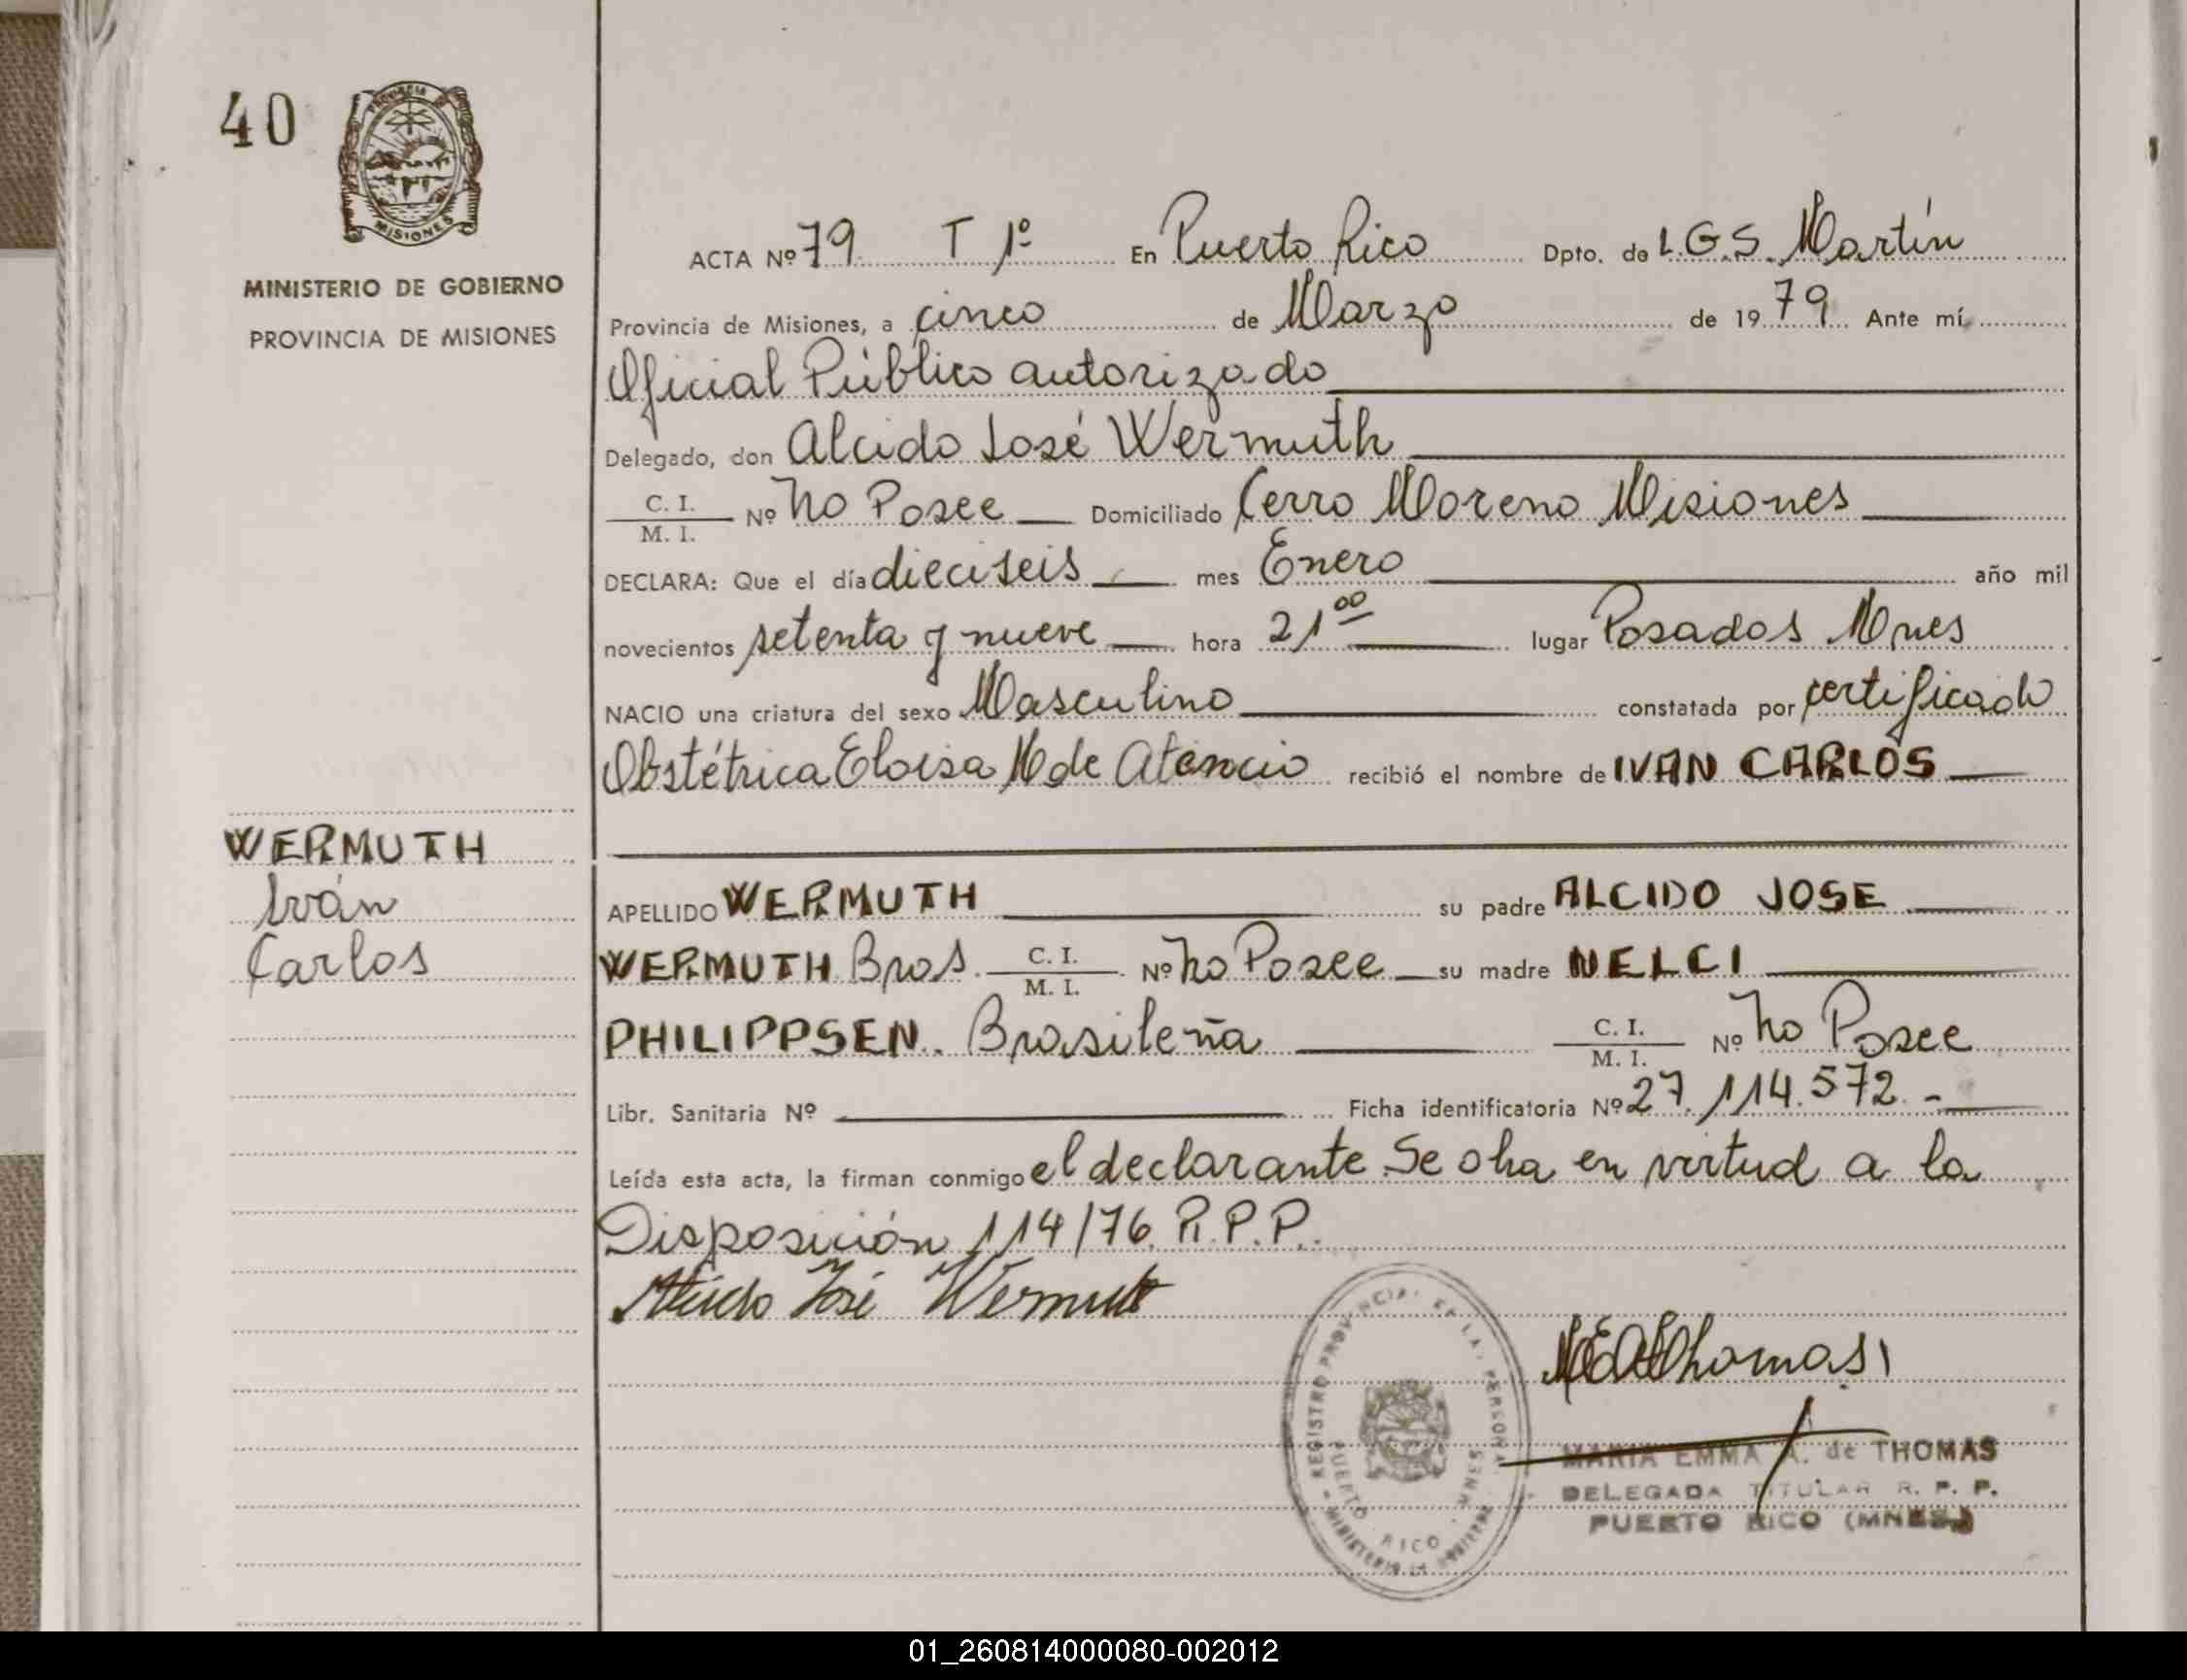 40
PROVINCIA DE
MISIONES
MINISTERIO DE GOBIERNO
PROVINCIA DE MISIONES
ACTA Nº 79 T 1º En Puerto Rico Dpto. de L.G.S. Martín
Provincia de Misiones, a cinco de Marzo de 1979 Ante mí
Oficial Público autorizado
Delegado, don Alcido José Wermuth
C. I. / M. I. Nº No Posee Domiciliado Cerro Moreno Misiones
DECLARA: Que el día dieciseis mes Enero año mil
novecientos setenta y nueve hora 21 00 lugar Posadas Mnes
NACIO una criatura del sexo Masculino constatada por certificado
Obstétrica Eloisa M de Atencio recibió el nombre de IVAN CARLOS
WERMUTH
Iván
Carlos
APELLIDO WERMUTH su padre ALCIDO JOSE
WERMUTH Bras. C. I. / M. I. Nº No Posee su madre NELCI
PHILIPPSEN. Brasileña C. I. / M. I. Nº No Posee
Libr. Sanitaria Nº Ficha identificatoria Nº 27.114.572.-
Leída esta acta, la firman conmigo el declarante. Se oha en virtud a la
Disposición 114/76. R.P.P.
Alcido José Wermuth
REGISTRO PROVINCIAL DE LAS PERSONAS
PUERTO RICO - MNES
MINISTERIO DE GOBIERNO
MEAdeThomas
MARIA EMMA A. de THOMAS
DELEGADA TITULAR R. P. P.
PUERTO RICO (MNES.)
01_260814000080-002012